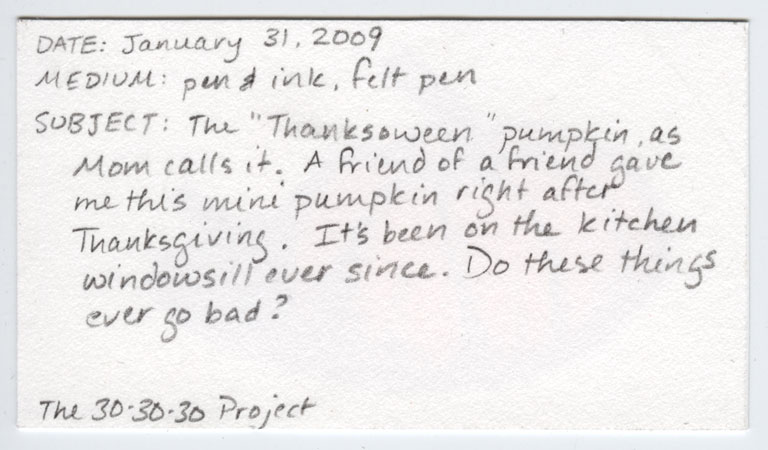 DATE: January 31, 2009
MEDIUM: pen & ink, felt pen
SUBJECT: The "Thanksoween" pumpkin, as
Mom calls it. A friend of a friend gave
me this mini pumpkin right after
Thanksgiving. It's been on the kitchen
windowsill ever since. Do these things
ever go bad?
The 30-30-30 Project